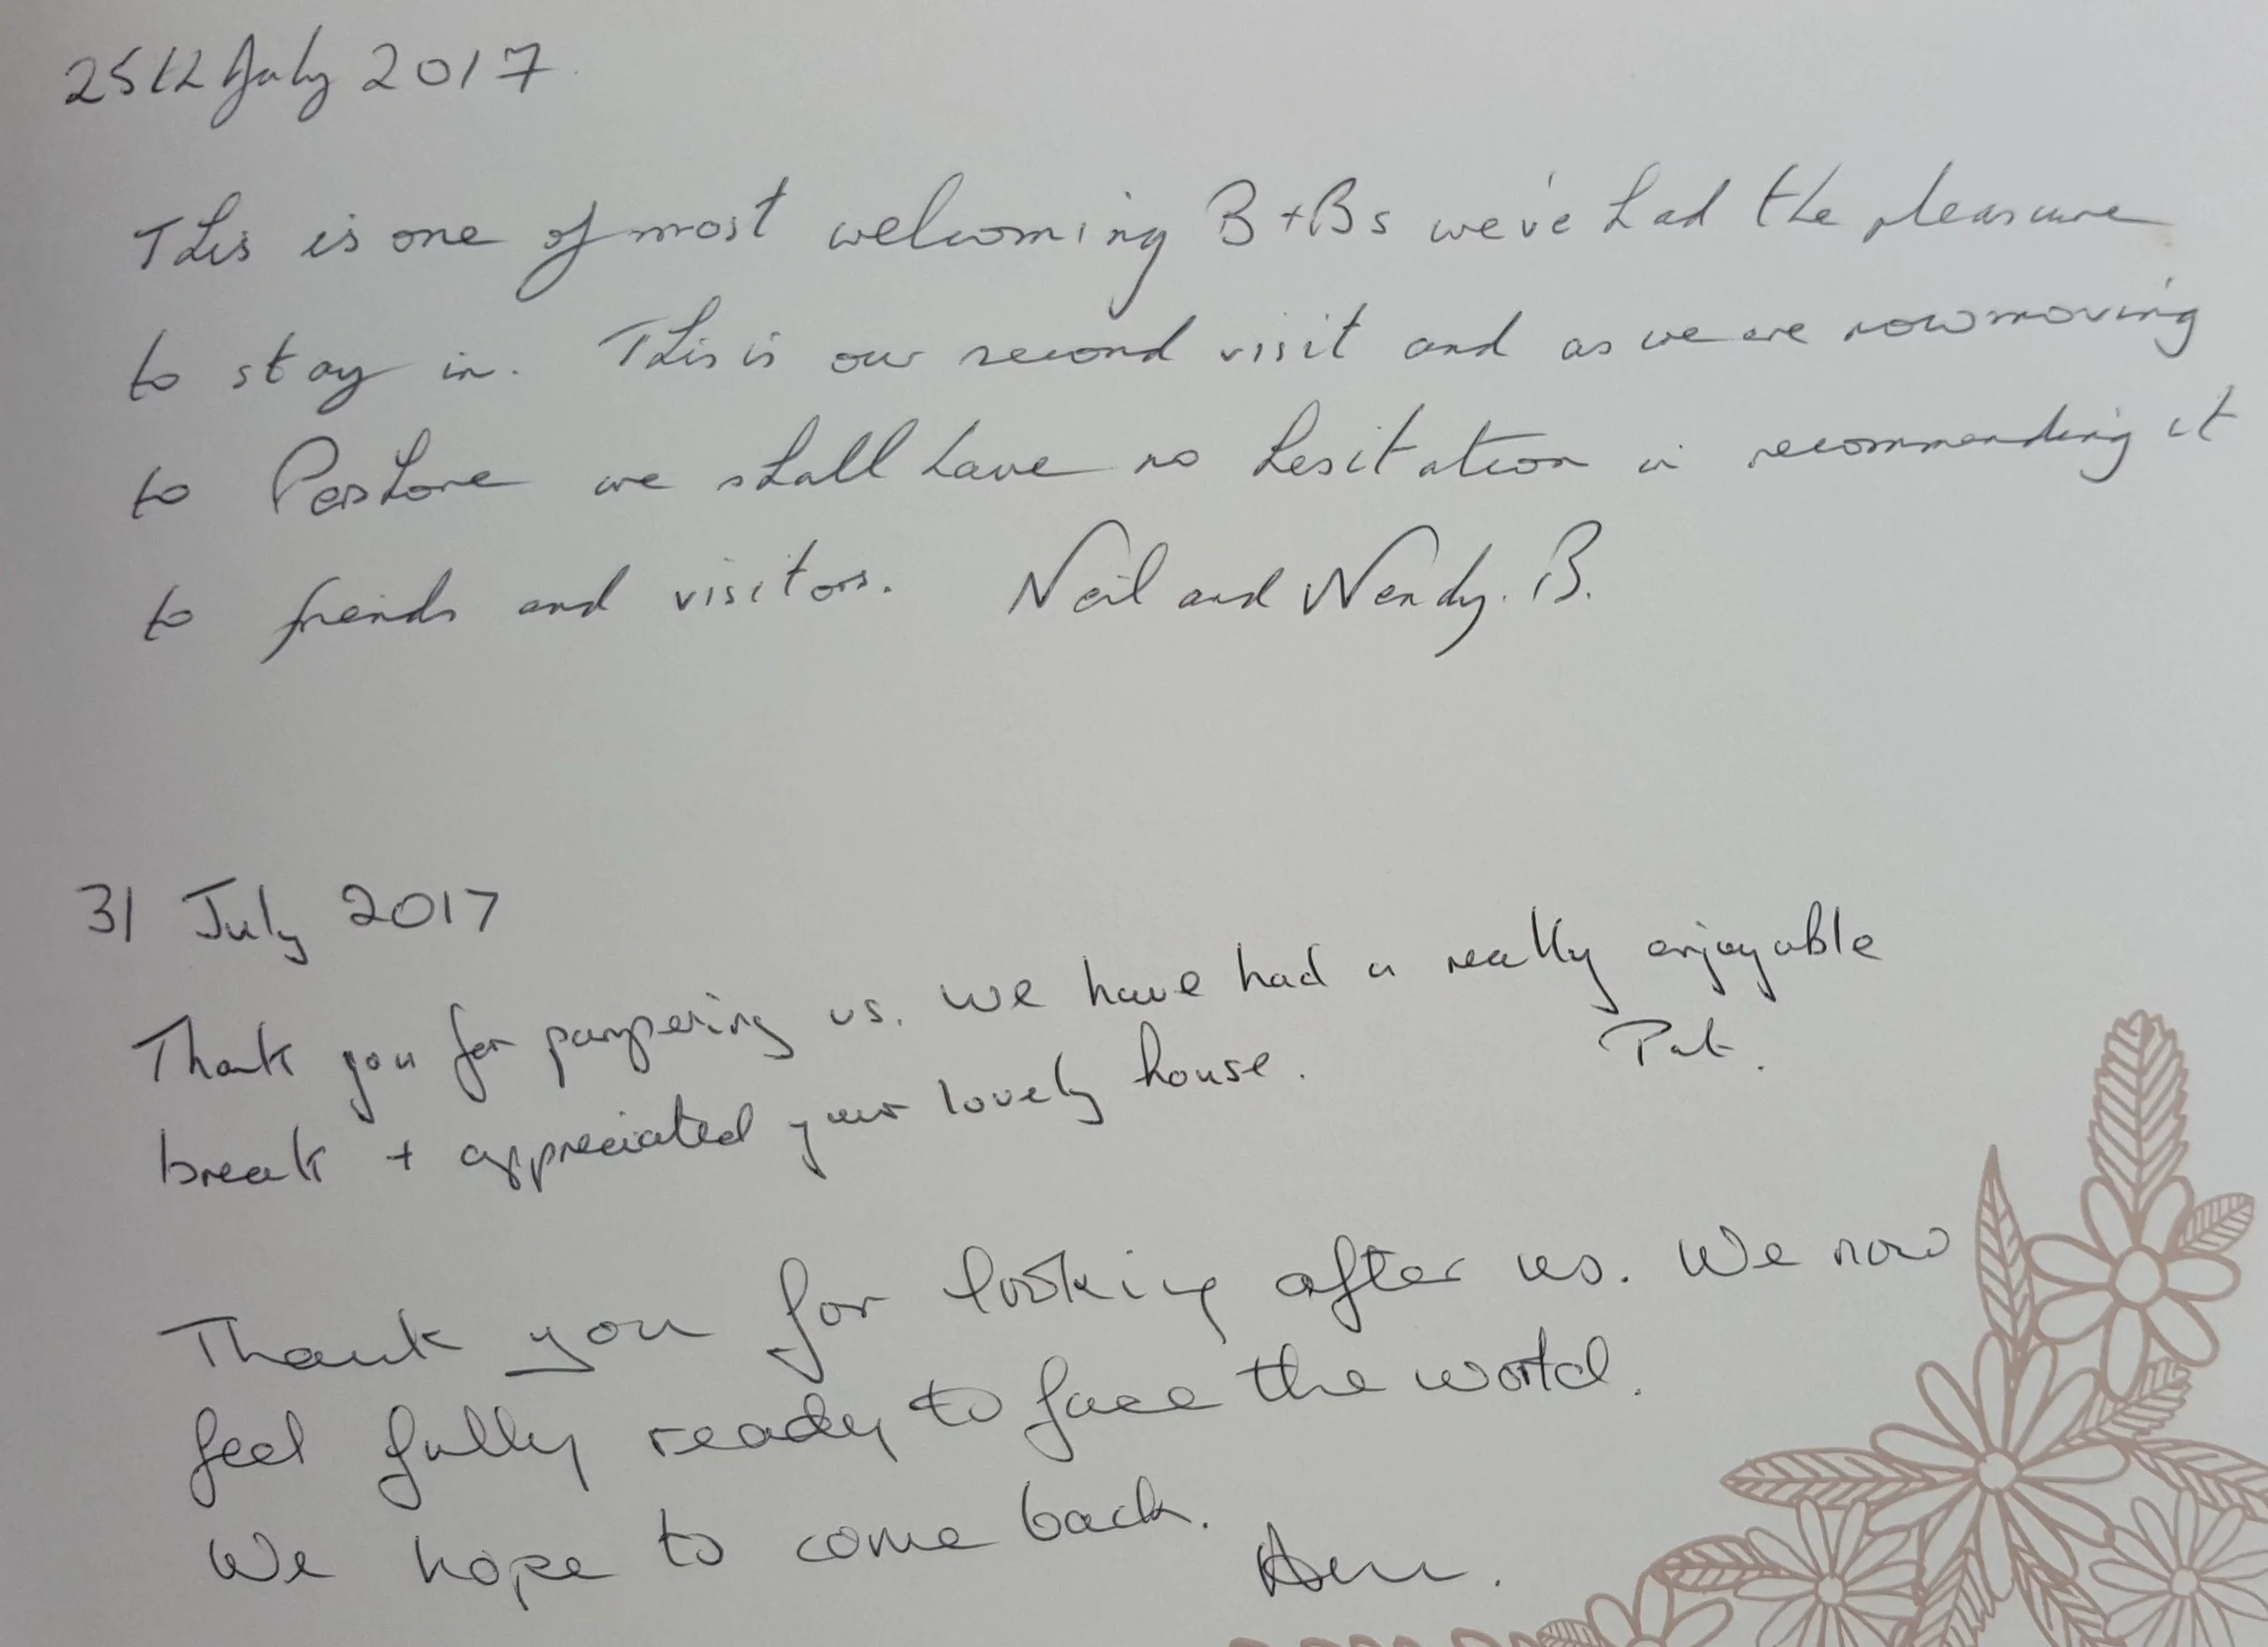 25th July 2017.
This is one of most welcoming B+Bs we've had the pleasure
to stay in. This is our second visit and as we are now moving
to Pershore we shall have no hesitation in recommending it
to friends and visitors. Neil and Wendy. B.
31 July 2017
Thank you for pampering us. We have had a really enjoyable
break + appreciated your lovely house. Pat.
Thank you for looking after us. We now
feel fully ready to face the world.
We hope to come back.